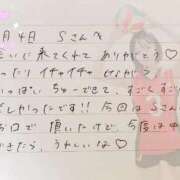 月4日 Sさんへ
いに来てくれて ありがとう♡
ったり イチャイチャ
っぱい、ちゅーできて、すごくすご
しかったです!! 今回は
日で 頂いたけど、今度は中
きたら、うれしいな♡